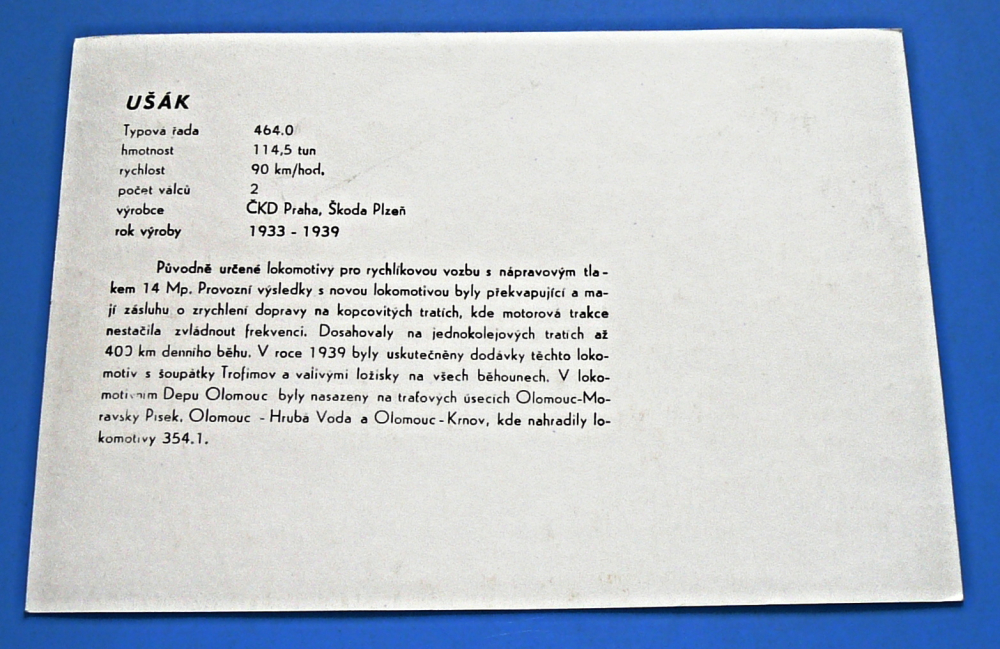 UŠÁK
Typová řada 464.0
hmotnost 114,5 tun
rychlost 90 km/hod.
počet válců 2
výrobce ČKD Praha, Škoda Plzeň
rok výroby 1933 - 1939
Původně určené lokomotivy pro rychlíkovou vozbu s nápravovým tla-
kem 14 Mp. Provozní výsledky s novou lokomotivou byly překvapující a ma-
jí zásluhu o zrychlení dopravy na kopcovitých tratích, kde motorová trakce
nestačila zvládnout frekvenci. Dosahovaly na jednokolejových tratích až
400 km denního běhu. V roce 1939 byly uskutečněny dodávky těchto loko-
motiv s šoupátky Trofimov a valivými ložisky na všech běhounech. V loko-
motivním Depu Olomouc byly nasazeny na traťových úsecích Olomouc-Mo-
ravský Písek, Olomouc - Hrubá Voda a Olomouc - Krnov, kde nahradily lo-
komotivy 354.1.